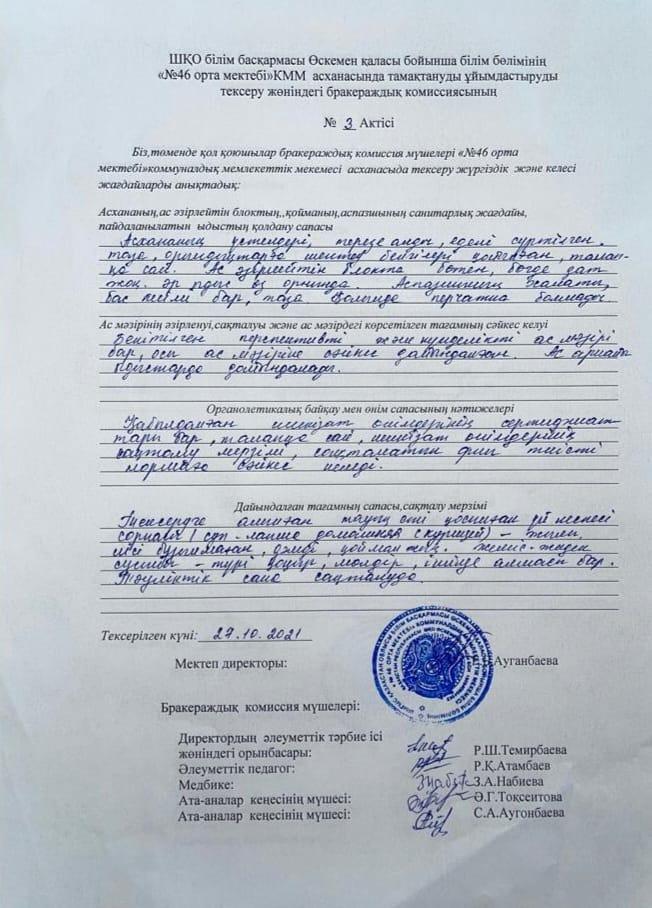 ШҚО білім басқармасы Өскемен қаласы бойынша білім бөлімінің
«№46 орта мектебі»КММ асханасында тамақтануды ұйымдастыруды
тексеру жөніндегі бракераждық комиссиясының
№ 3 Актісі
Біз,төменде қол қоюшылар бракераждық комиссия мүшелері «№46 орта
мектебі»коммуналдық мемлекеттік мекемесі асханасыда тексеру жүргіздік және келесі
жағдайларды анықтадық:
Асхананың,ас әзірлейтін блоктың,,қойманың,аспазшының санитарлық жағдайы,
пайдаланылатын ыдыстың қолдану сапасы
Асхананың үстелдері, терезе алды, едені сүртілген,
таза, орындықтарға
қа сай. Ас әзірлейтін блокта бөтен, бөгде зат
жоқ. Әр ыдыс өз орнында. Аспазшының халаты,
бас киімі бар, таза. Қолында перчатка болмады
Ас мәзірінің әзірленуі,сақталуы және ас мәзірдегі көрсетілген тағамның сәйкес келуі
Бекітілген перспективті және күнделікті ас мәзірі
бар, осы ас мәзіріне сәйкес дайындалған. Ас арнайы
ыдыстарда дайындалады.
Органолетикалық байқау мен өнім сапасының нәтижелері
Қабылданған шикізат өнімдерінің сертификат
тары бар, талапқа сай, шикізат өнімдерінің
сақталу мерзімі, сақталатын орны тиісті
нормаға сәйкес келеді.
Дайындалған тағамның сапасы,сақталу мерзімі
Түскі асқа тауық еті қосылған үй кеспесі
сорпасы (суп-лапша домашняя с курицей) –
иісі бұзылмаған, дәмді, қоймалжың. жеміс-жидек
сусыны – түрі мөлдір, ішінде алмасы бар.
Тәуліктік сақталуда.
Тексерілген күні: 27.10.2021
Мектеп директоры: Ауганбаева
Бракераждық комиссия мүшелері:
Директордың әлеуметтік тәрбие ісі
жөніндегі орынбасары: Р.Ш.Темирбаева
Әлеуметтік педагог: Р.Қ.Атамбаев
Медбике: З.А.Набиева
Ата-аналар кеңесінің мүшесі: Ә.Г.Тоқсеитова
Ата-аналар кеңесінің мүшесі: С.А.Аугонбаева